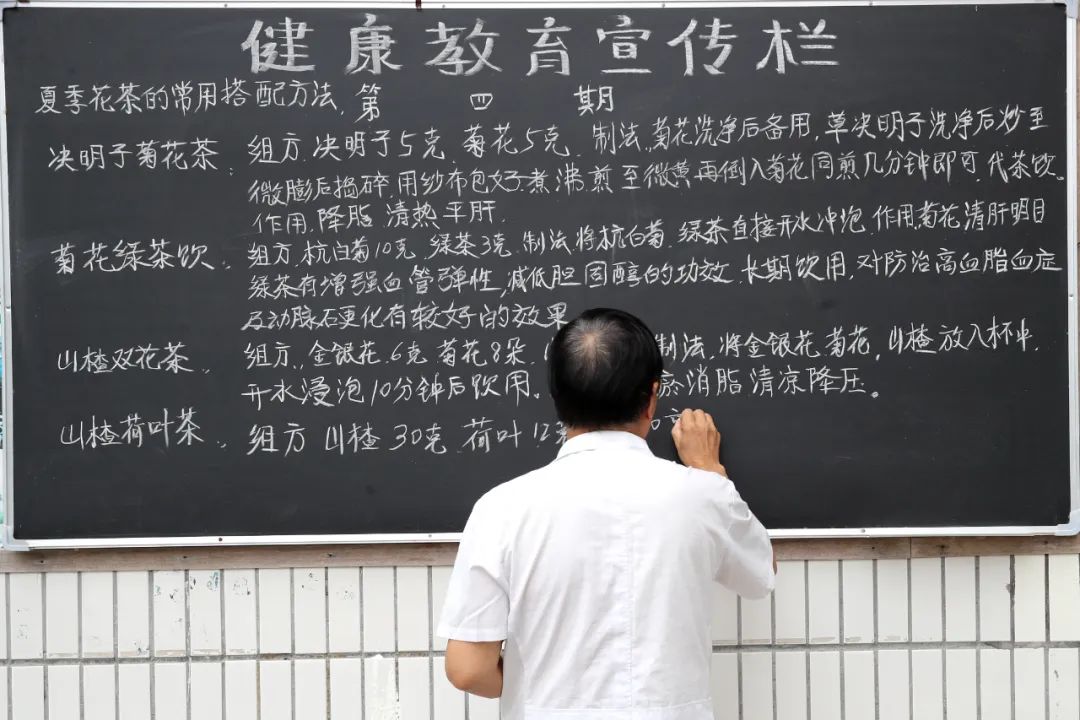 健康教育宣传栏
夏季花茶的常用搭配方法. 第 四 期
决明子菊花茶. 组方.决明子5克.菊花5克. 制法.菊花洗净后备用,草决明子洗净后炒至
微膨后捣碎,用纱布包好.煮沸.煎至微黄再倒入菊花同煎几分钟即可.代茶饮.
作用.降脂.清热平肝.
菊花绿茶饮. 组方.杭白菊10克.绿茶3克.制法.将杭白菊.绿茶直接开水冲泡.作用.菊花清肝明目
绿茶有增强血管弹性,减低胆固醇的功效.长期饮用,对防治高血脂血症
及动脉硬化有较好的效果
山楂双花茶. 组方.金银花.6克 菊花8朵. 制法.将金银花.菊花,山楂放入杯中,
开水浸泡10分钟后饮用. 消脂清凉降压。
山楂荷叶茶. 组方 山楂30克.荷叶12